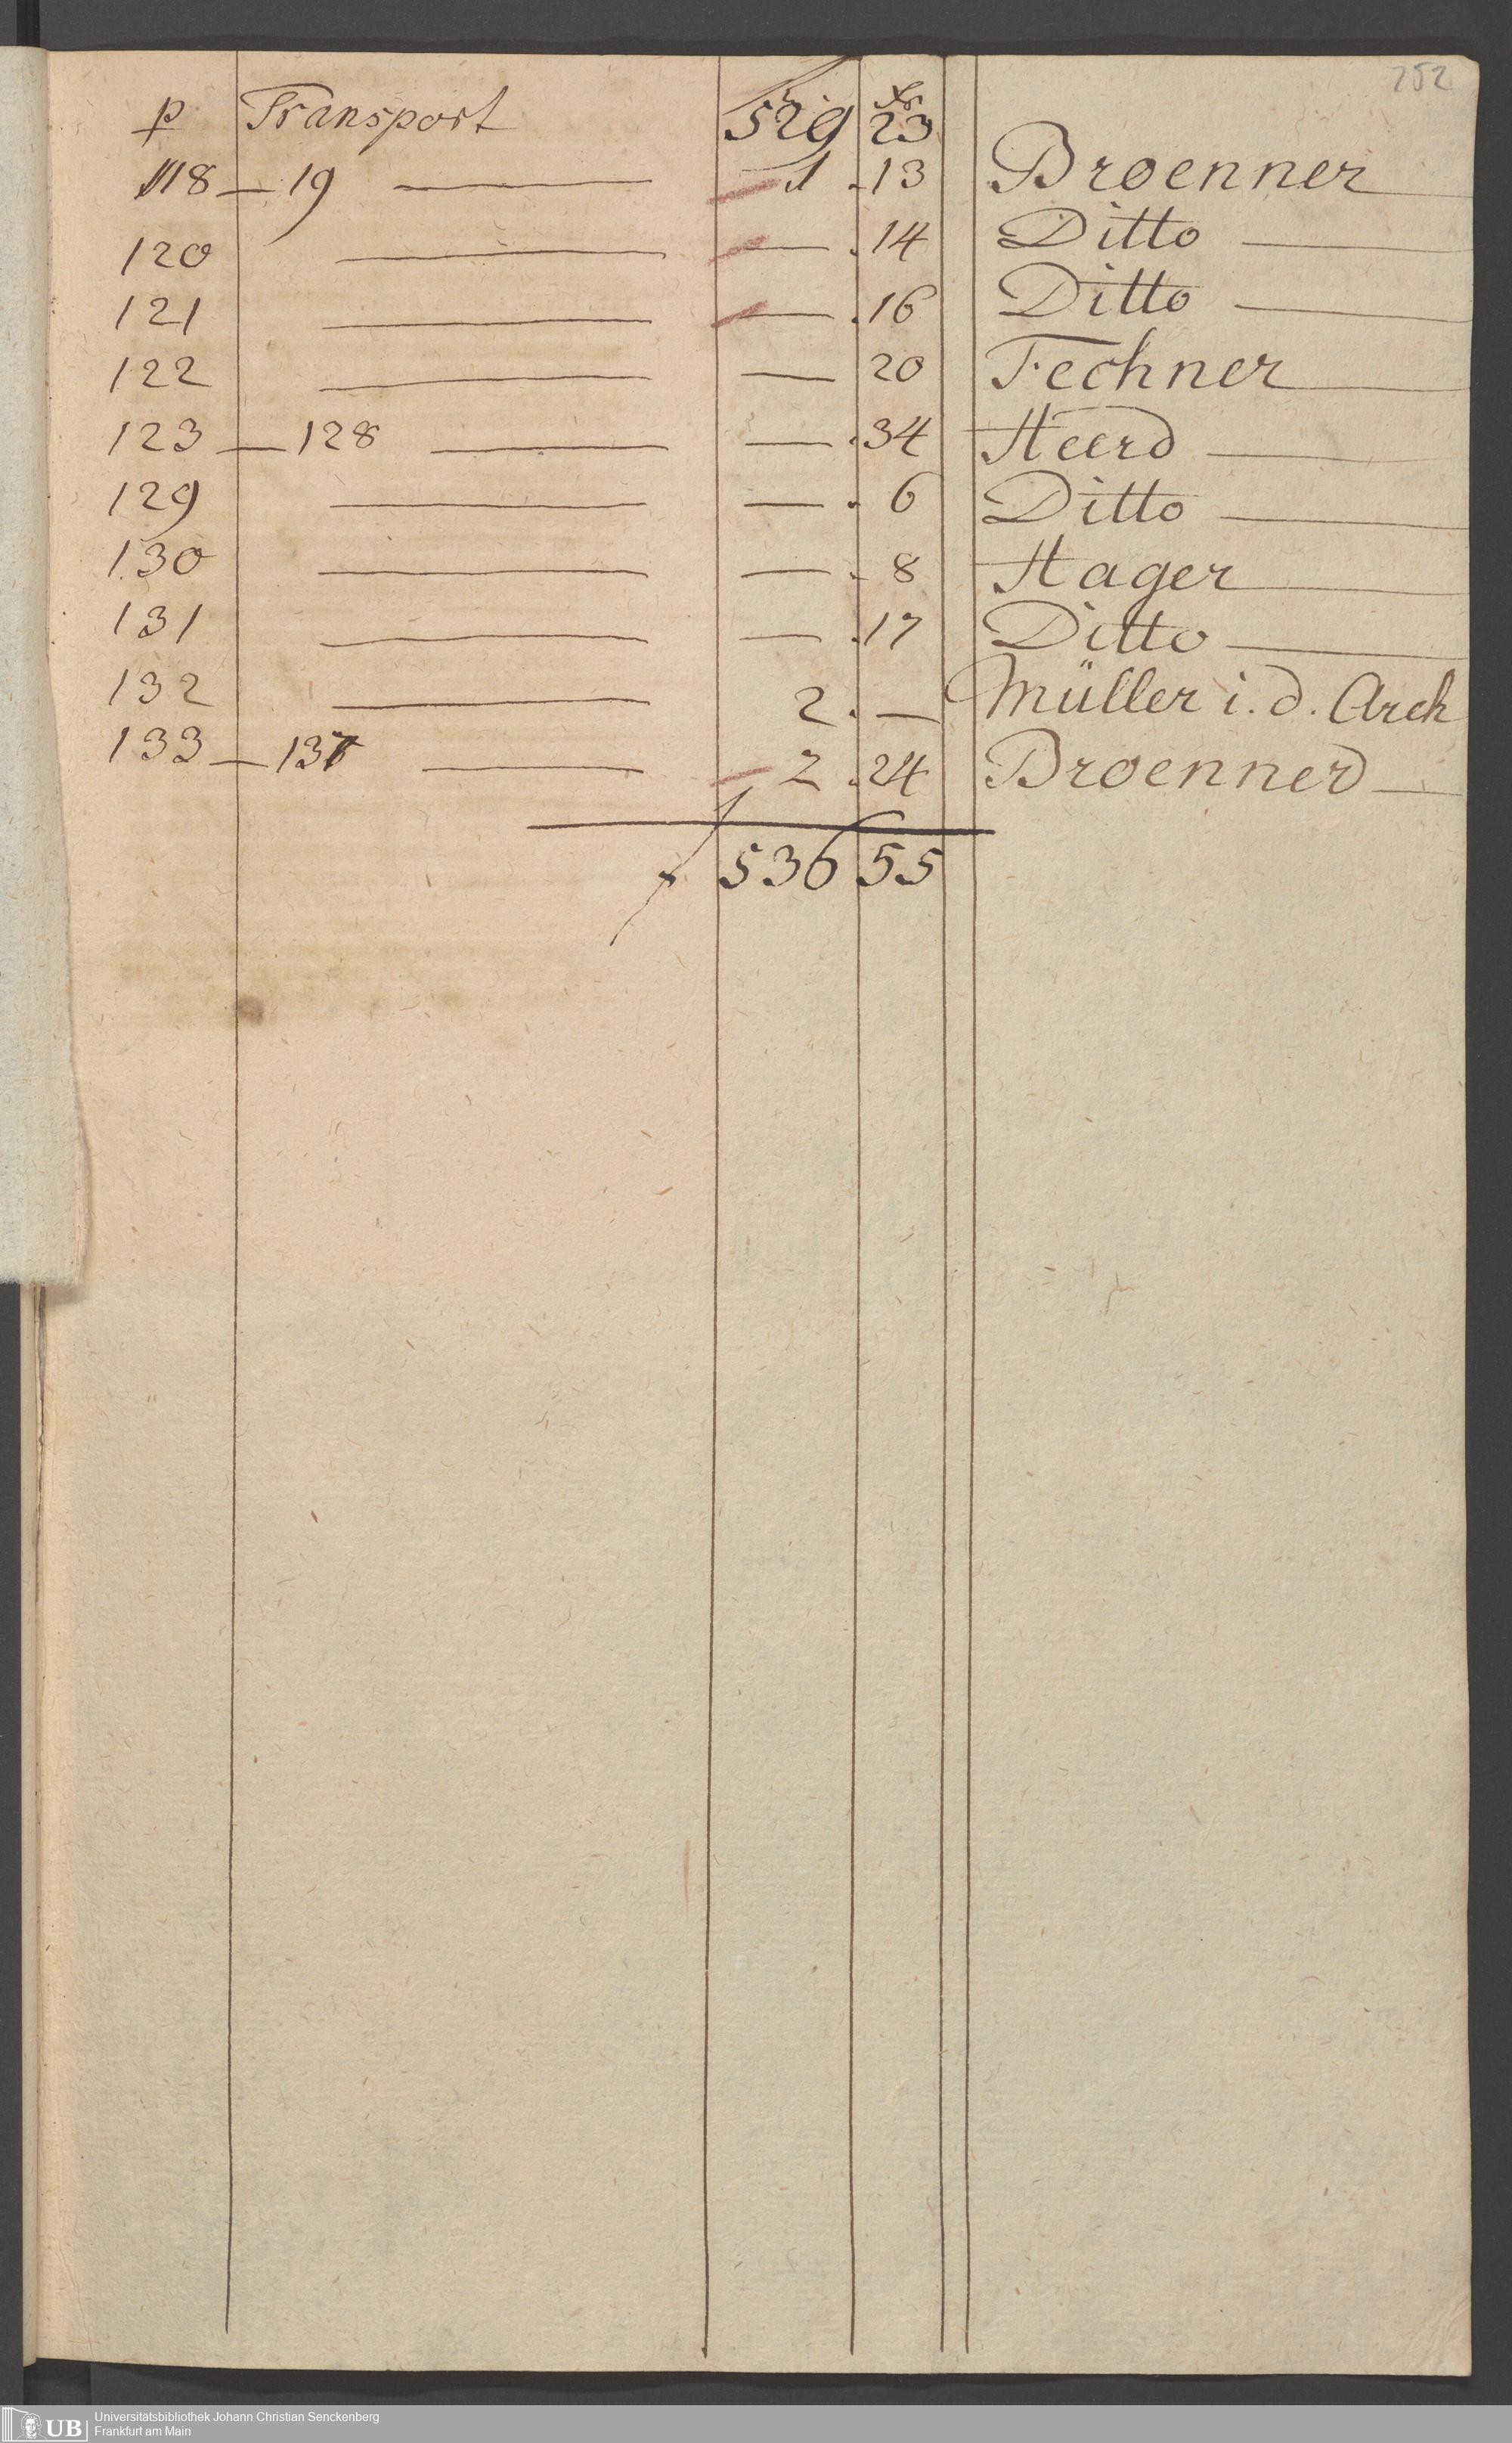 252
p Transport f 529 Xr 23
118 — 19 — 1 . 13 Broenner
120 — — . 14 Ditto —
121 — — . 16 Ditto —
122 — — 20 Fechner
123 — 128 — — . 34 Heerd —
129 — — . 6 Ditto —
130 — — . 8 Hager
131 — — . 17 Ditto —
132 — 2 . — Müller i. d. Arch
133 — 137 — 2 . 24 Broenner —
f 536 55
UB Universitätsbibliothek Johann Christian Senckenberg
Frankfurt am Main